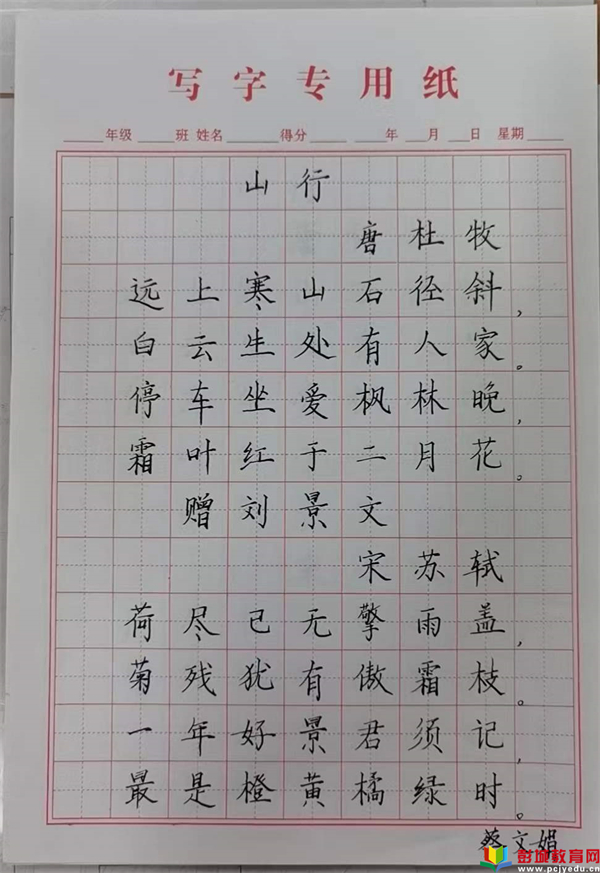 写字专用纸
年级 班 姓名 得分 年 月 日 星期
山行
唐 杜牧
远上寒山石径斜，
白云生处有人家。
停车坐爱枫林晚，
霜叶红于二月花。
赠刘景文
宋 苏轼
荷尽已无擎雨盖，
菊残犹有傲霜枝。
一年好景君须记，
最是橙黄橘绿时。
蔡文娟
彭城教育网
www.pcjyedu.cn